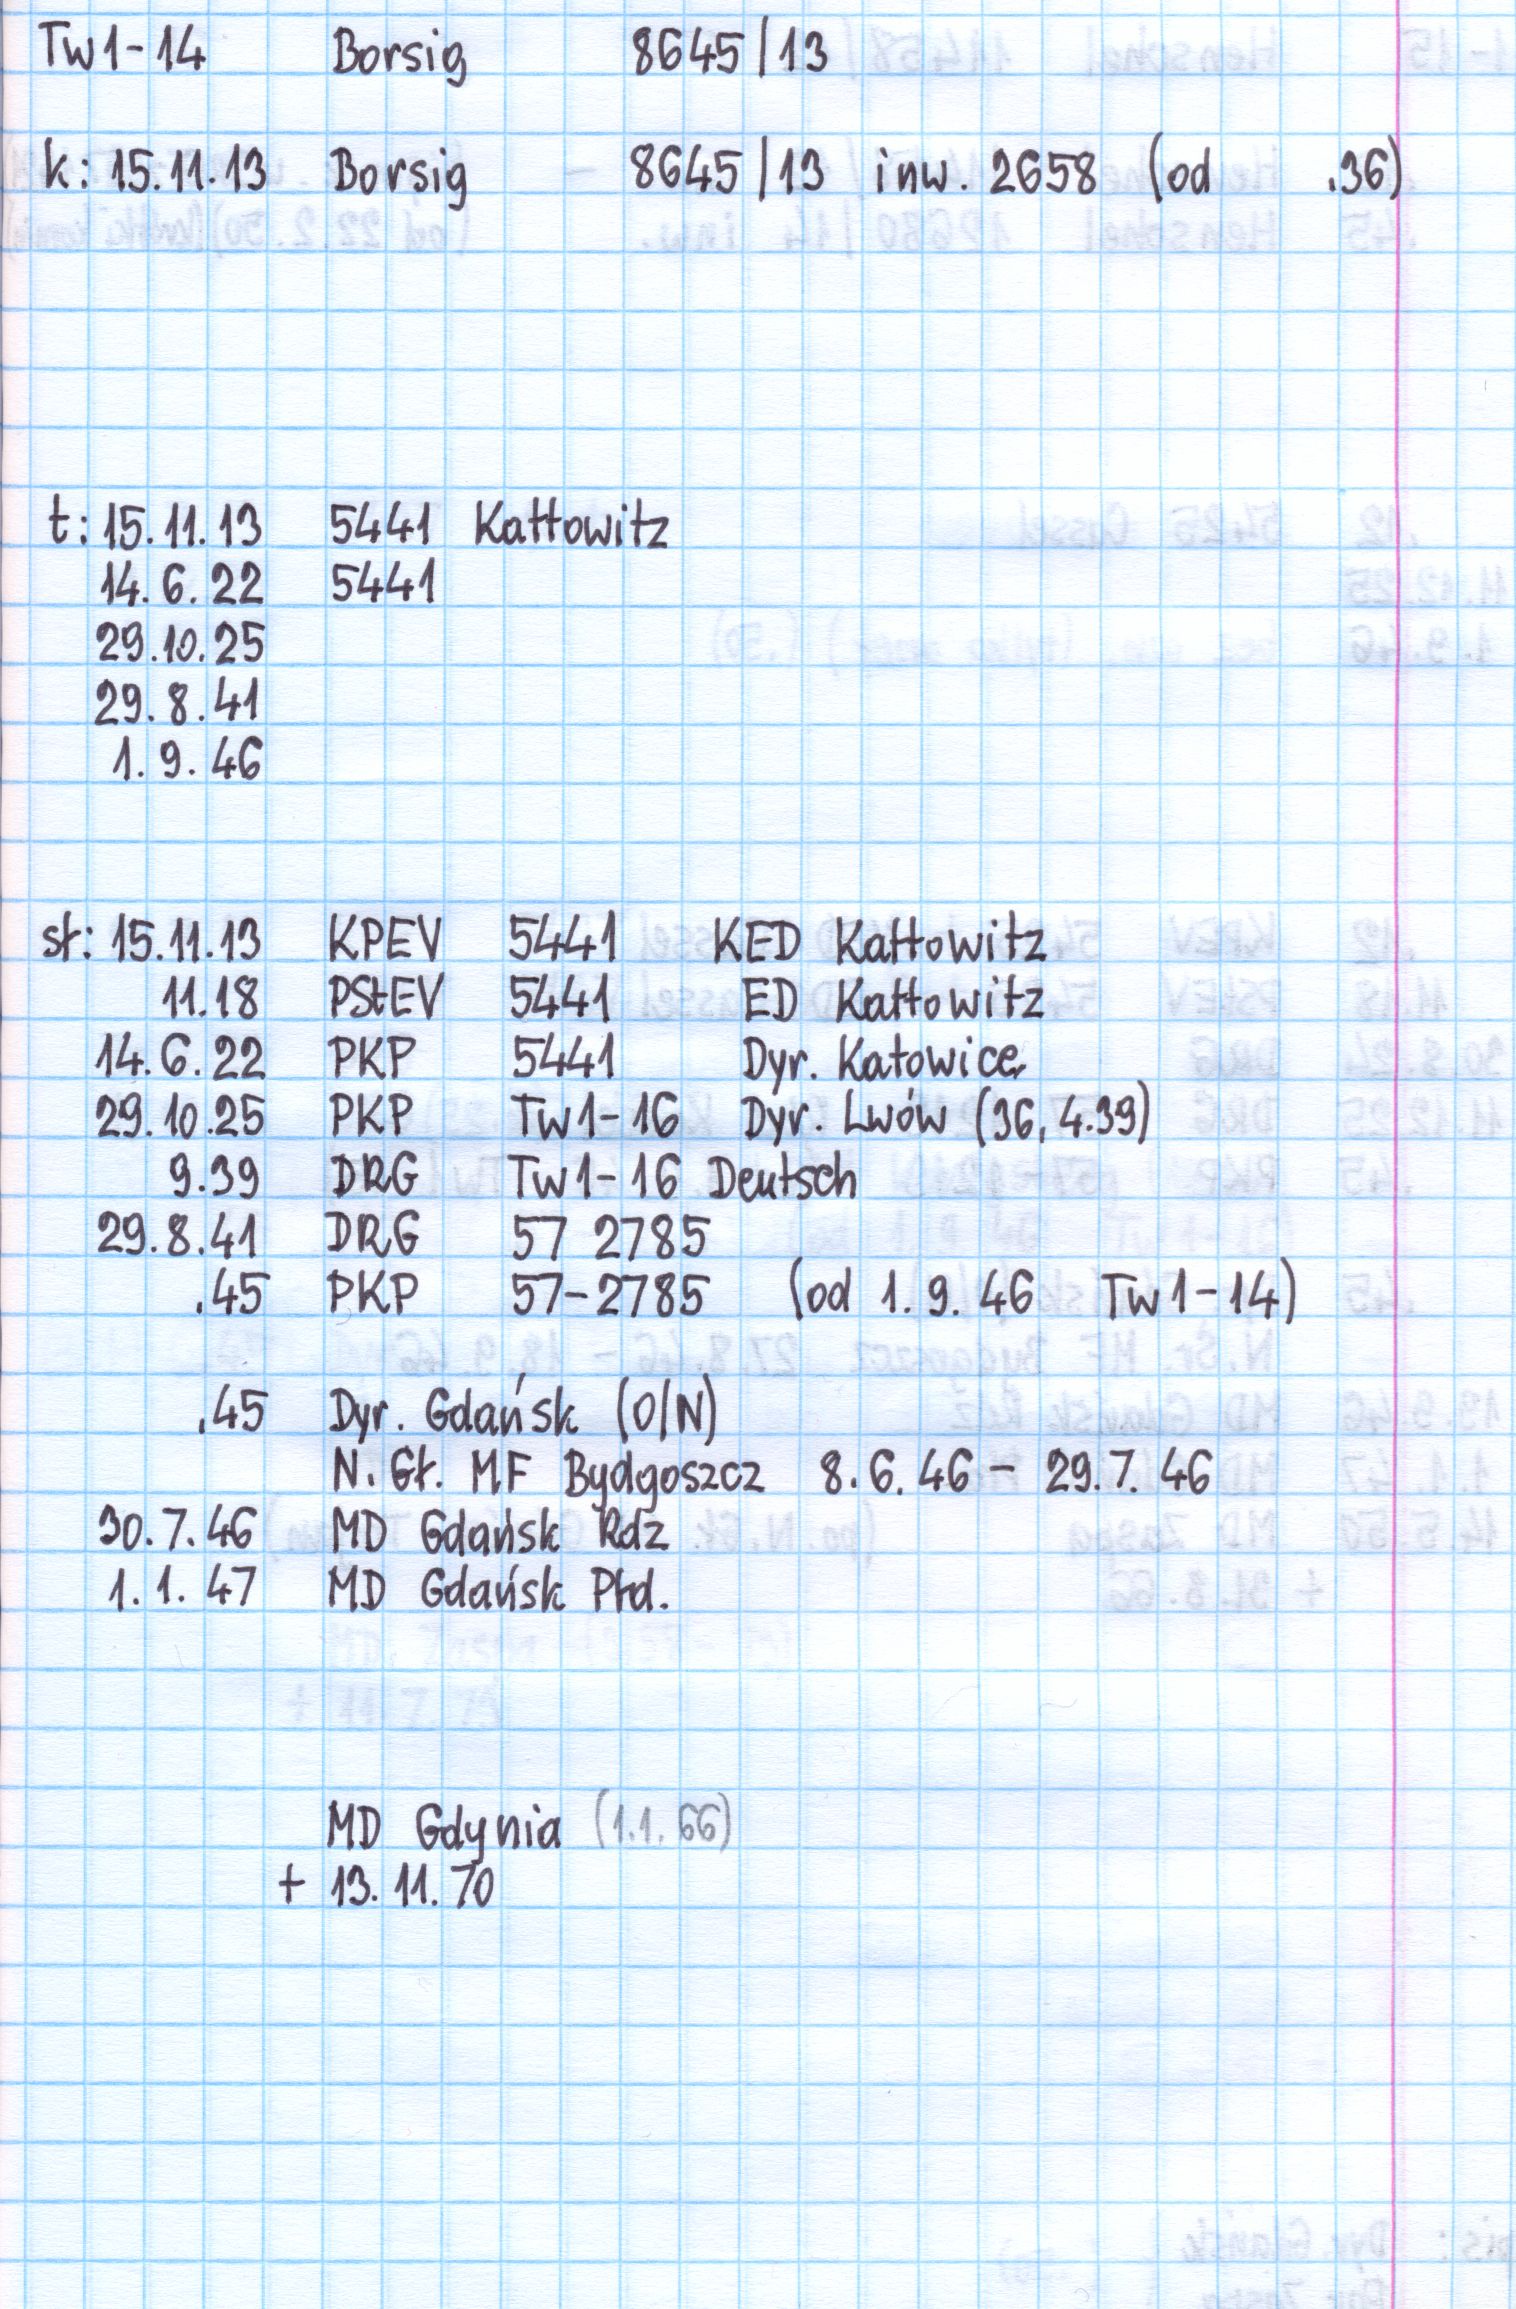 Tw1-14 Borsig 8645/13
k: 15.11.13 Borsig 8645/13 inw. 2658 (od .36)
t: 15.11.13 5441 Kattowitz
14.6.22 5441
29.10.25
29.8.41
1.9.46
sł: 15.11.13 KPEV 5441 KED Kattowitz
11.18 PStEV 5441 ED Kattowitz
14.6.22 PKP 5441 Dyr. Katowice
29.10.25 PKP Tw1-16 Dyr. Lwów (36, 4.39)
9.39 DRG Tw1-16 Deutsch
29.8.41 DRG 57 2785
.45 PKP 57-2785 (od 1.9.46 Tw1-14)
.45 Dyr. Gdańsk (O/N)
N. Gł. MF Bydgoszcz 8.6.46 - 29.7.46
30.7.46 MD Gdańsk Rdz
1.1.47 MD Gdańsk Płd.
MD Gdynia (1.1.66)
+ 13.11.70